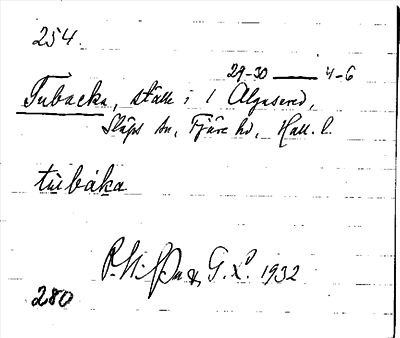 254.
29-30 — 4-6
Tubacka, ställe i 1 Algusered,
Släps sn, Fjäre hd, Hall. l.
tùbáka
G. L. 1932
280